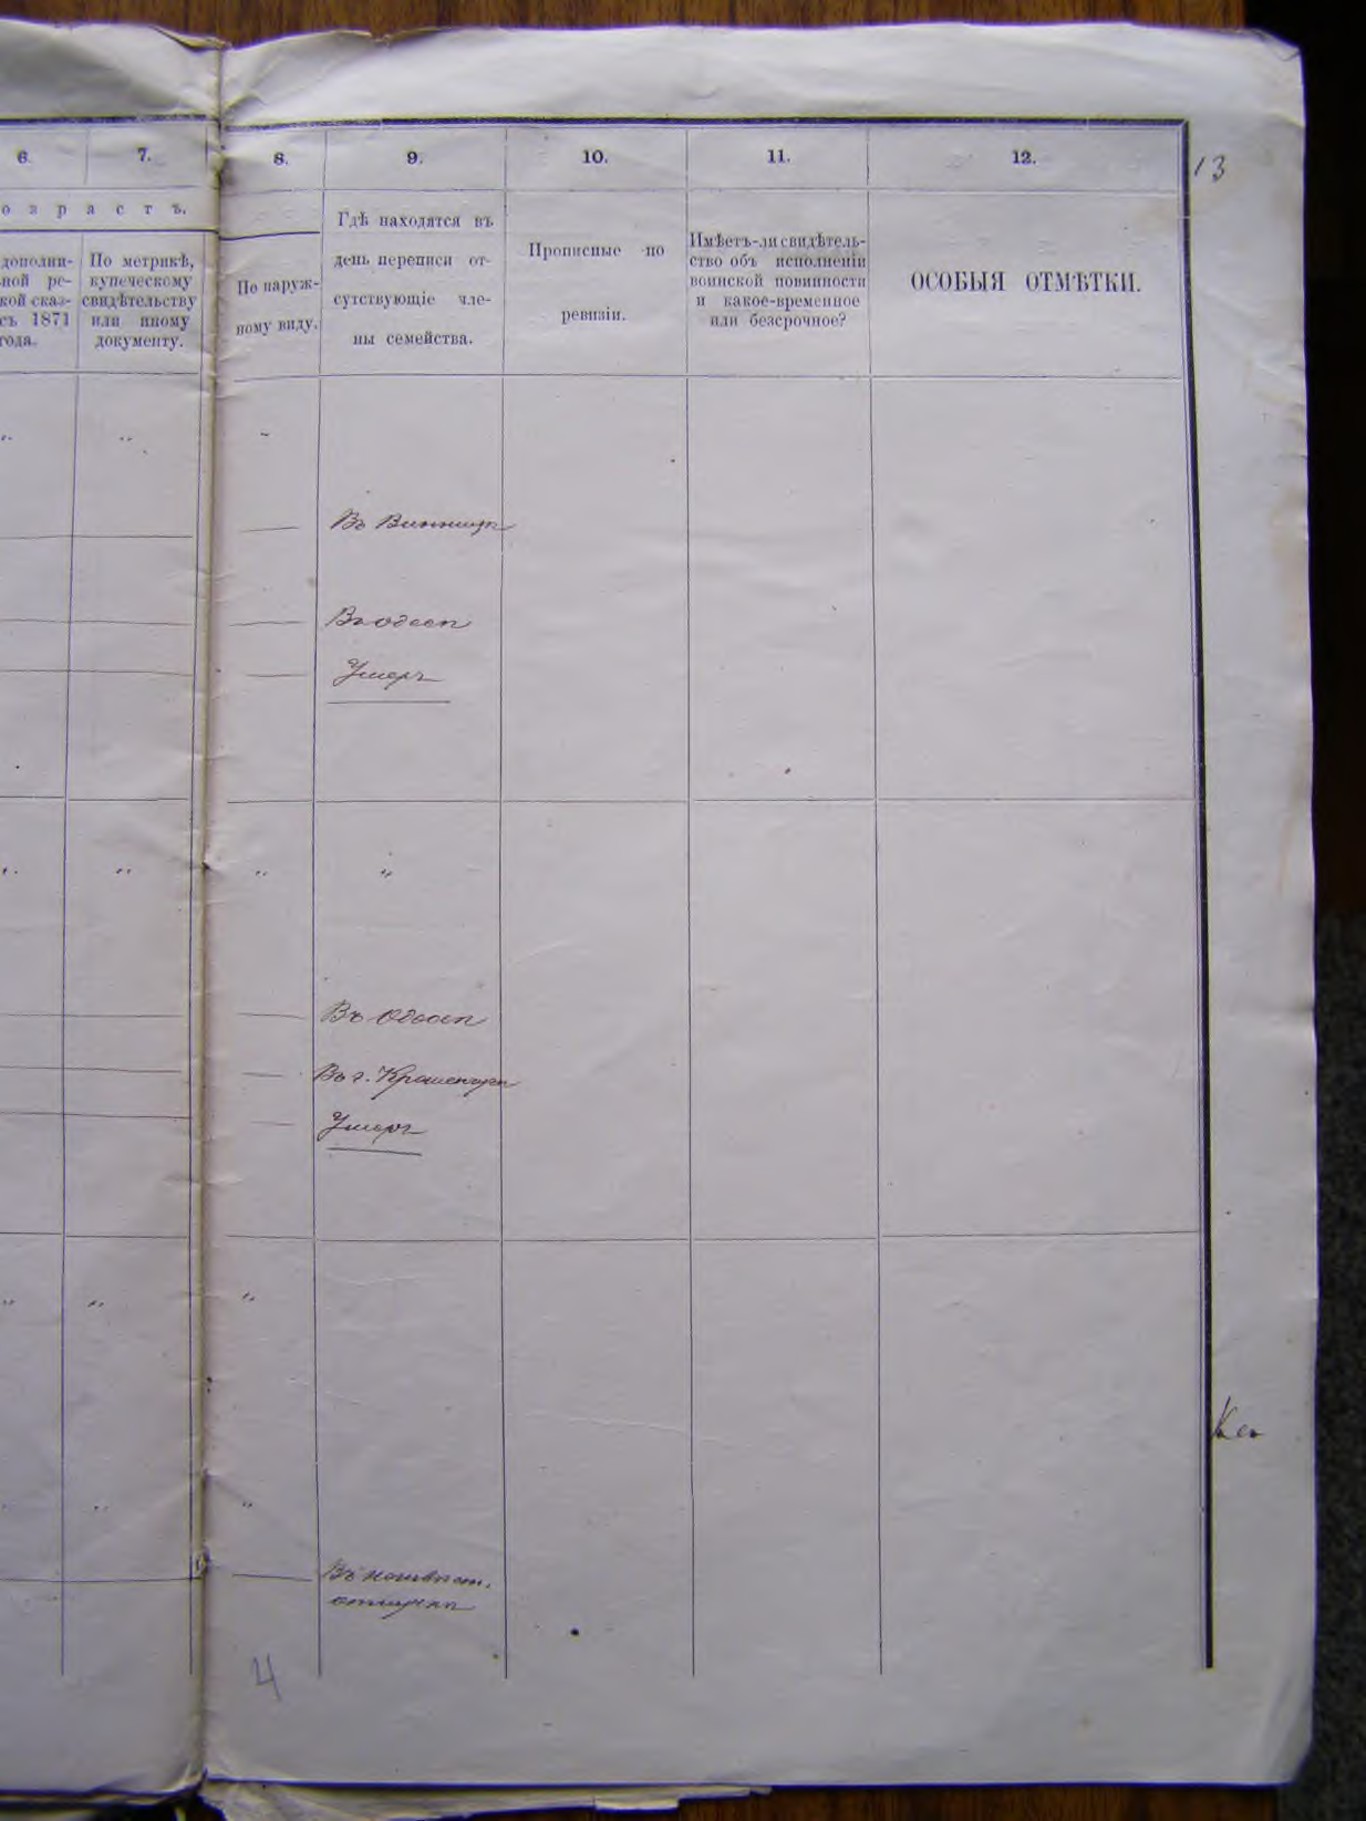 6. 7. 8. 9. 10. 11. 12.
13
озрастъ.
дополни-
ной ре-
кой сказ-
съ 1871
года.
По метрикѣ,
купеческому
свидѣтельству
или иному
документу.
По наруж-
ному виду.
Гдѣ находятся въ
день переписи от-
сутствующіе чле-
ны семейства.
Прописные по
ревизіи.
Имѣетъ-ли свидѣтель-
ство объ исполненіи
воинской повинности
и какое-временное
или безсрочное?
ОСОБЫЯ ОТМѢТКИ.
Въ Винницѣ
Въ Одессѣ
Умеръ
Въ Одессѣ
Въ г.
Умеръ
Въ
отлучкѣ
4